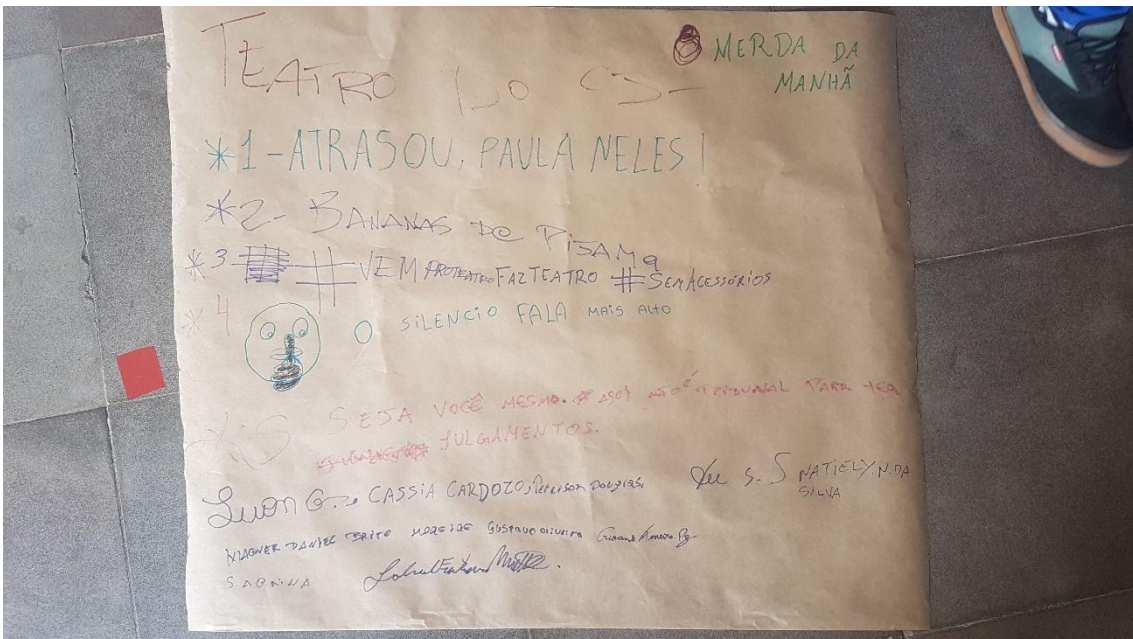 TEATRO DO CJ-
MERDA DA
MANHÃ
*1-ATRASOU, PAULA NELES!
*2- BANANAS DE PIJAMA
*3- # VEM PROTEATRO FAZTEATRO #SEMACESSÓRIOS
*4 O SILENCIO FALA MAIS ALTO
*5 SEJA VOCÊ MESMO. AQUI NÃO É TRIBUNAL PARA TER
JULGAMENTOS.
Luan G. CASSIA CARDOZO, Douglas, S. S NATIELY.N.DA
SILVA
WAGNER DANIEL BRITO MOREIRA GUSTAVO OLIVEIRA
SABRINA